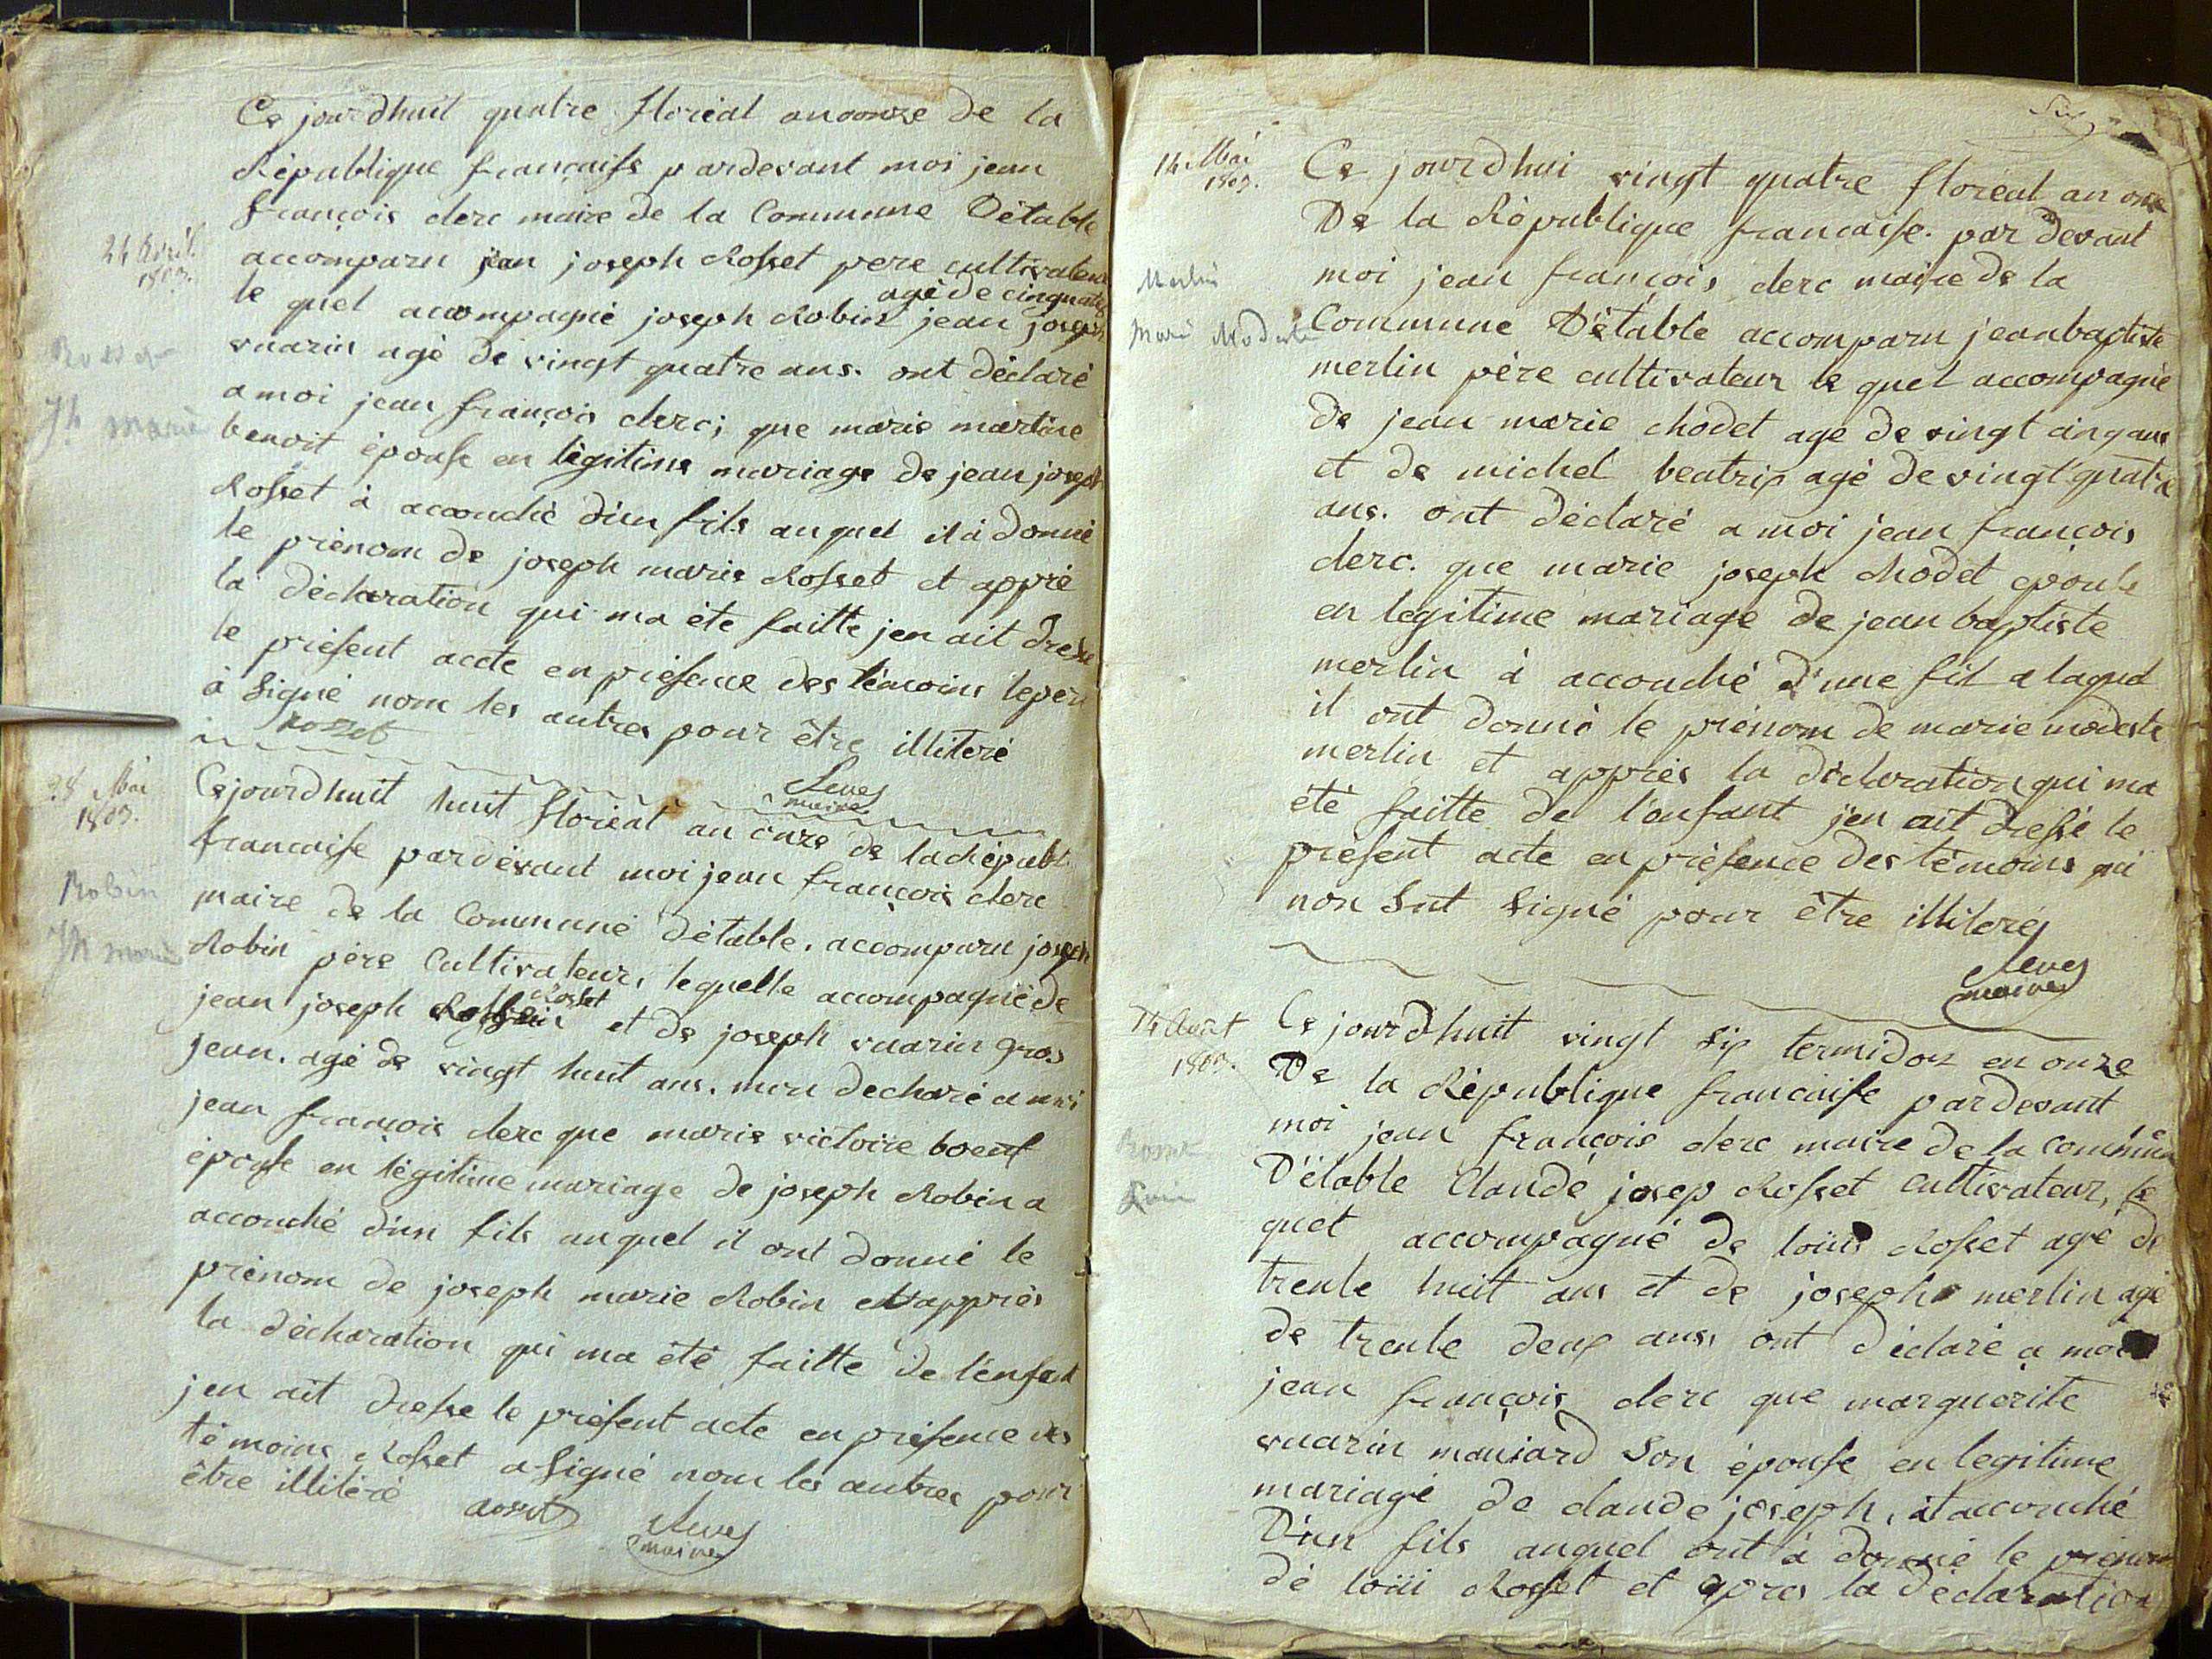 Ce jourdhuit quatre floréal an onze de la
République francaise pardevant moi jean
françois clerc maire de la Commune Détable
24 Avril
1803.
accomparu jean joseph Rosset pere cultivateur
agé de cinquante
le quel accompagné joseph Robin jean joseph
vuarin agé de vingt quatre ans. ont déclaré
Rosset
Jh marie
a moi jean françois clerc; que marie martine
benoit épouse en légitime mariage de jean joseph
Rosset à accouché d'un fils auquel il à donné
le prénom de joseph marie Rosset et appré
la déclaration qui ma éte faitte jen ait dressé
le présent acte en présence des témoins le pere
à signé nom les autres pour être illiteré
Rosset
Clerc
maire
28 Mai
1803.
Cejourdhuit huit floréal an onze de la Républ
francaise pardevant moi jean françois clerc
Robin
Jh marie
maire de la Commune détable. accomparu joseph
Robin pére Cultivateur, lequelle accompagné de
Rosset
jean joseph et de joseph vuarin gros
jean. agé de vingt huit ans. mon declaré a moi
jean françois clerc que marie victoire boeuf
épouse en légitime mariage de joseph Robin a
accouché d'un fils auquel il ont donné le
prénom de joseph marie Robin et apprès
la déclaration qui ma été faitte de l'enfant
jen ait dresse le présent acte en présence des
témoins Rosset a signé nom les autres pour
être illiteré
Rosset
Clerc
maire
Six
14 Mai
1803.
Ce jourdhui vingt quatre floreal an onze
De la République francaise. par devant
Merlin
Marie Modeste
moi jean françois clerc maire de la
Commune Détable accomparu jean baptiste
merlin pére cultivateur le quel accompagné
de jean marie chodet age de vingt cinq ans
et de michel beatrix agé de vingt quatre
ans. ont déclaré a moi jean françois
clerc. que marie joseph chodet epouse
en legitime mariage de jean baptiste
merlin à accouché d'une fil a laquel
il ont donné le prénom de marie modeste
merlin et apprès la déclaration qui ma
été faitte de l'enfant j'en ait dressé le
présent acte en présence des témoins qui
non snt signé pour être illiterés
Clerc
maire
14 Août
1803.
Ce jourdhuit vingt six termidor en onze
De la République francaise pardevant
moi jean françois clerc maire de la commune
Rosset
Louis
D'étable Claude josep Rosset Cultivateur, le
quel accompagné de loüis Rosset agé de
trente huit ans et de joseph merlin agé
de trente deux ans, ont déclaré a moi
jean françois clerc que marguerite
vuarin maniard son épouse en legitime
mariage de claude joseph, at accouché
D'un fils auquel ont à donné le prénom
dé loüi Rosset et apres la déclaration